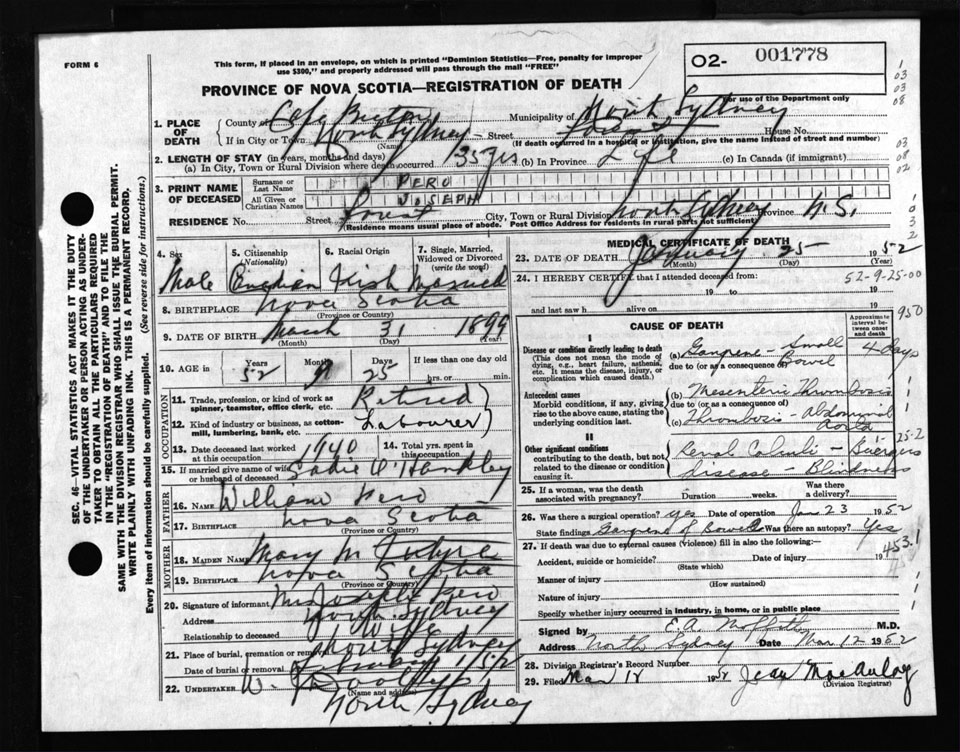 FORM 6
This form, if placed in an envelope, on which is printed "Dominion Statistics—Free, penalty for improper
use $300," and properly addressed will pass through the mail "FREE"
PROVINCE OF NOVA SCOTIA—REGISTRATION OF DEATH
02- 001778
For use of the Department only
1. PLACE OF DEATH
County of Cape Breton Municipality of North Sydney
If in City or Town North Sydney Street Forest House No.
(Name) (If death occurred in a hospital or institution, give the name instead of street and number)
2. LENGTH OF STAY (in years, months and days)
(a) In City, Town or Rural Division where death occurred 35 yrs (b) In Province Life (c) In Canada (if immigrant)
3. PRINT NAME OF DECEASED
Surname or Last Name PERO
All Given or Christian Names JOSEPH
RESIDENCE No. Street Forest City, Town or Rural Division North Sydney Province N.S.
(Residence means usual place of abode. Post Office Address for rural parts not sufficient)
4. Sex
Male
5. Citizenship
(Nationality)
6. Racial Origin
Irish
7. Single, Married, Widowed or Divorced
(write the word)
Married
8. BIRTHPLACE Nova Scotia
(Province or Country)
9. DATE OF BIRTH March 31 1899
(Month) (Day) (Year)
10. AGE in
Years Months Days If less than one day old
52 9 25 hrs. or min.
OCCUPATION
11. Trade, profession, or kind of work as spinner, teamster, office clerk, etc. Retired
12. Kind of industry or business, as cotton-mill, lumbering, bank, etc. Labourer
13. Date deceased last worked at this occupation 1940
14. Total yrs. spent in this occupation
15. If married give name of wife or husband of deceased Sadie O'Handley
FATHER
16. NAME William Pero
17. BIRTHPLACE Nova Scotia
(Province or Country)
MOTHER
18. MAIDEN NAME Mary
19. BIRTHPLACE Nova Scotia
(Province or Country)
20. Signature of informant Mrs Joseph Pero
Address North Sydney
Relationship to deceased Wife
21. Place of burial, cremation or removal North Sydney
Date of burial or removal February 1/52
22. UNDERTAKER W.
(Name and address)
North Sydney
MEDICAL CERTIFICATE OF DEATH
23. DATE OF DEATH January 25 1952
(Month) (Day)
24. I HEREBY CERTIFY that I attended deceased from:
52-9-25-00
19 to 19
and last saw h alive on 19
950
CAUSE OF DEATH
Approximate interval between onset and death
I
Disease or condition directly leading to death
(This does not mean the mode of dying, e.g., heart failure, asthenia, etc. It means the disease, injury, or complication which caused death.)
(a) Gangrene - Small Bowel 4 days
due to (or as a consequence of)
Antecedent causes
Morbid conditions, if any, giving rise to the above cause, stating the underlying condition last.
(b) Mesenteric Thrombosis
due to (or as a consequence of)
(c) Thrombosis - Abdominal Aorta
II
Other significant conditions contributing to the death, but not related to the disease or condition causing it.
Renal Calculi - Buergers
disease - Blindness
25-2
25. If a woman, was the death associated with pregnancy? Duration weeks. Was there a delivery?
26. Was there a surgical operation? Yes Date of operation Jan 23 1952
State findings Gangrene of Bowel Was there an autopsy? Yes
27. If death was due to external causes (violence) fill in also the following:—
453.1
Accident, suicide or homicide? Date of injury 19
(State which)
Manner of injury
(How sustained)
Nature of injury
Specify whether injury occurred in industry, in home, or in public place
Signed by E.A. Moffatt M.D.
Address North Sydney Date Mar 12 1952
28. Division Registrar's Record Number
29. Filed Mar 18 1952 Jean MacAulay
(Division Registrar)
SEC. 46—VITAL STATISTICS ACT MAKES IT THE DUTY
OF THE UNDERTAKER OR PERSON ACTING AS UNDER-
TAKER TO OBTAIN ALL THE PARTICULARS REQUIRED
IN THE "REGISTRATION OF DEATH" AND TO FILE THE
SAME WITH THE DIVISION REGISTRAR WHO SHALL ISSUE THE BURIAL PERMIT.
WRITE PLAINLY WITH UNFADING INK. THIS IS A PERMANENT RECORD.
Every item of information should be carefully supplied. (See reverse side for instructions.)
1
03
03
08
03
08
02
0
3
2